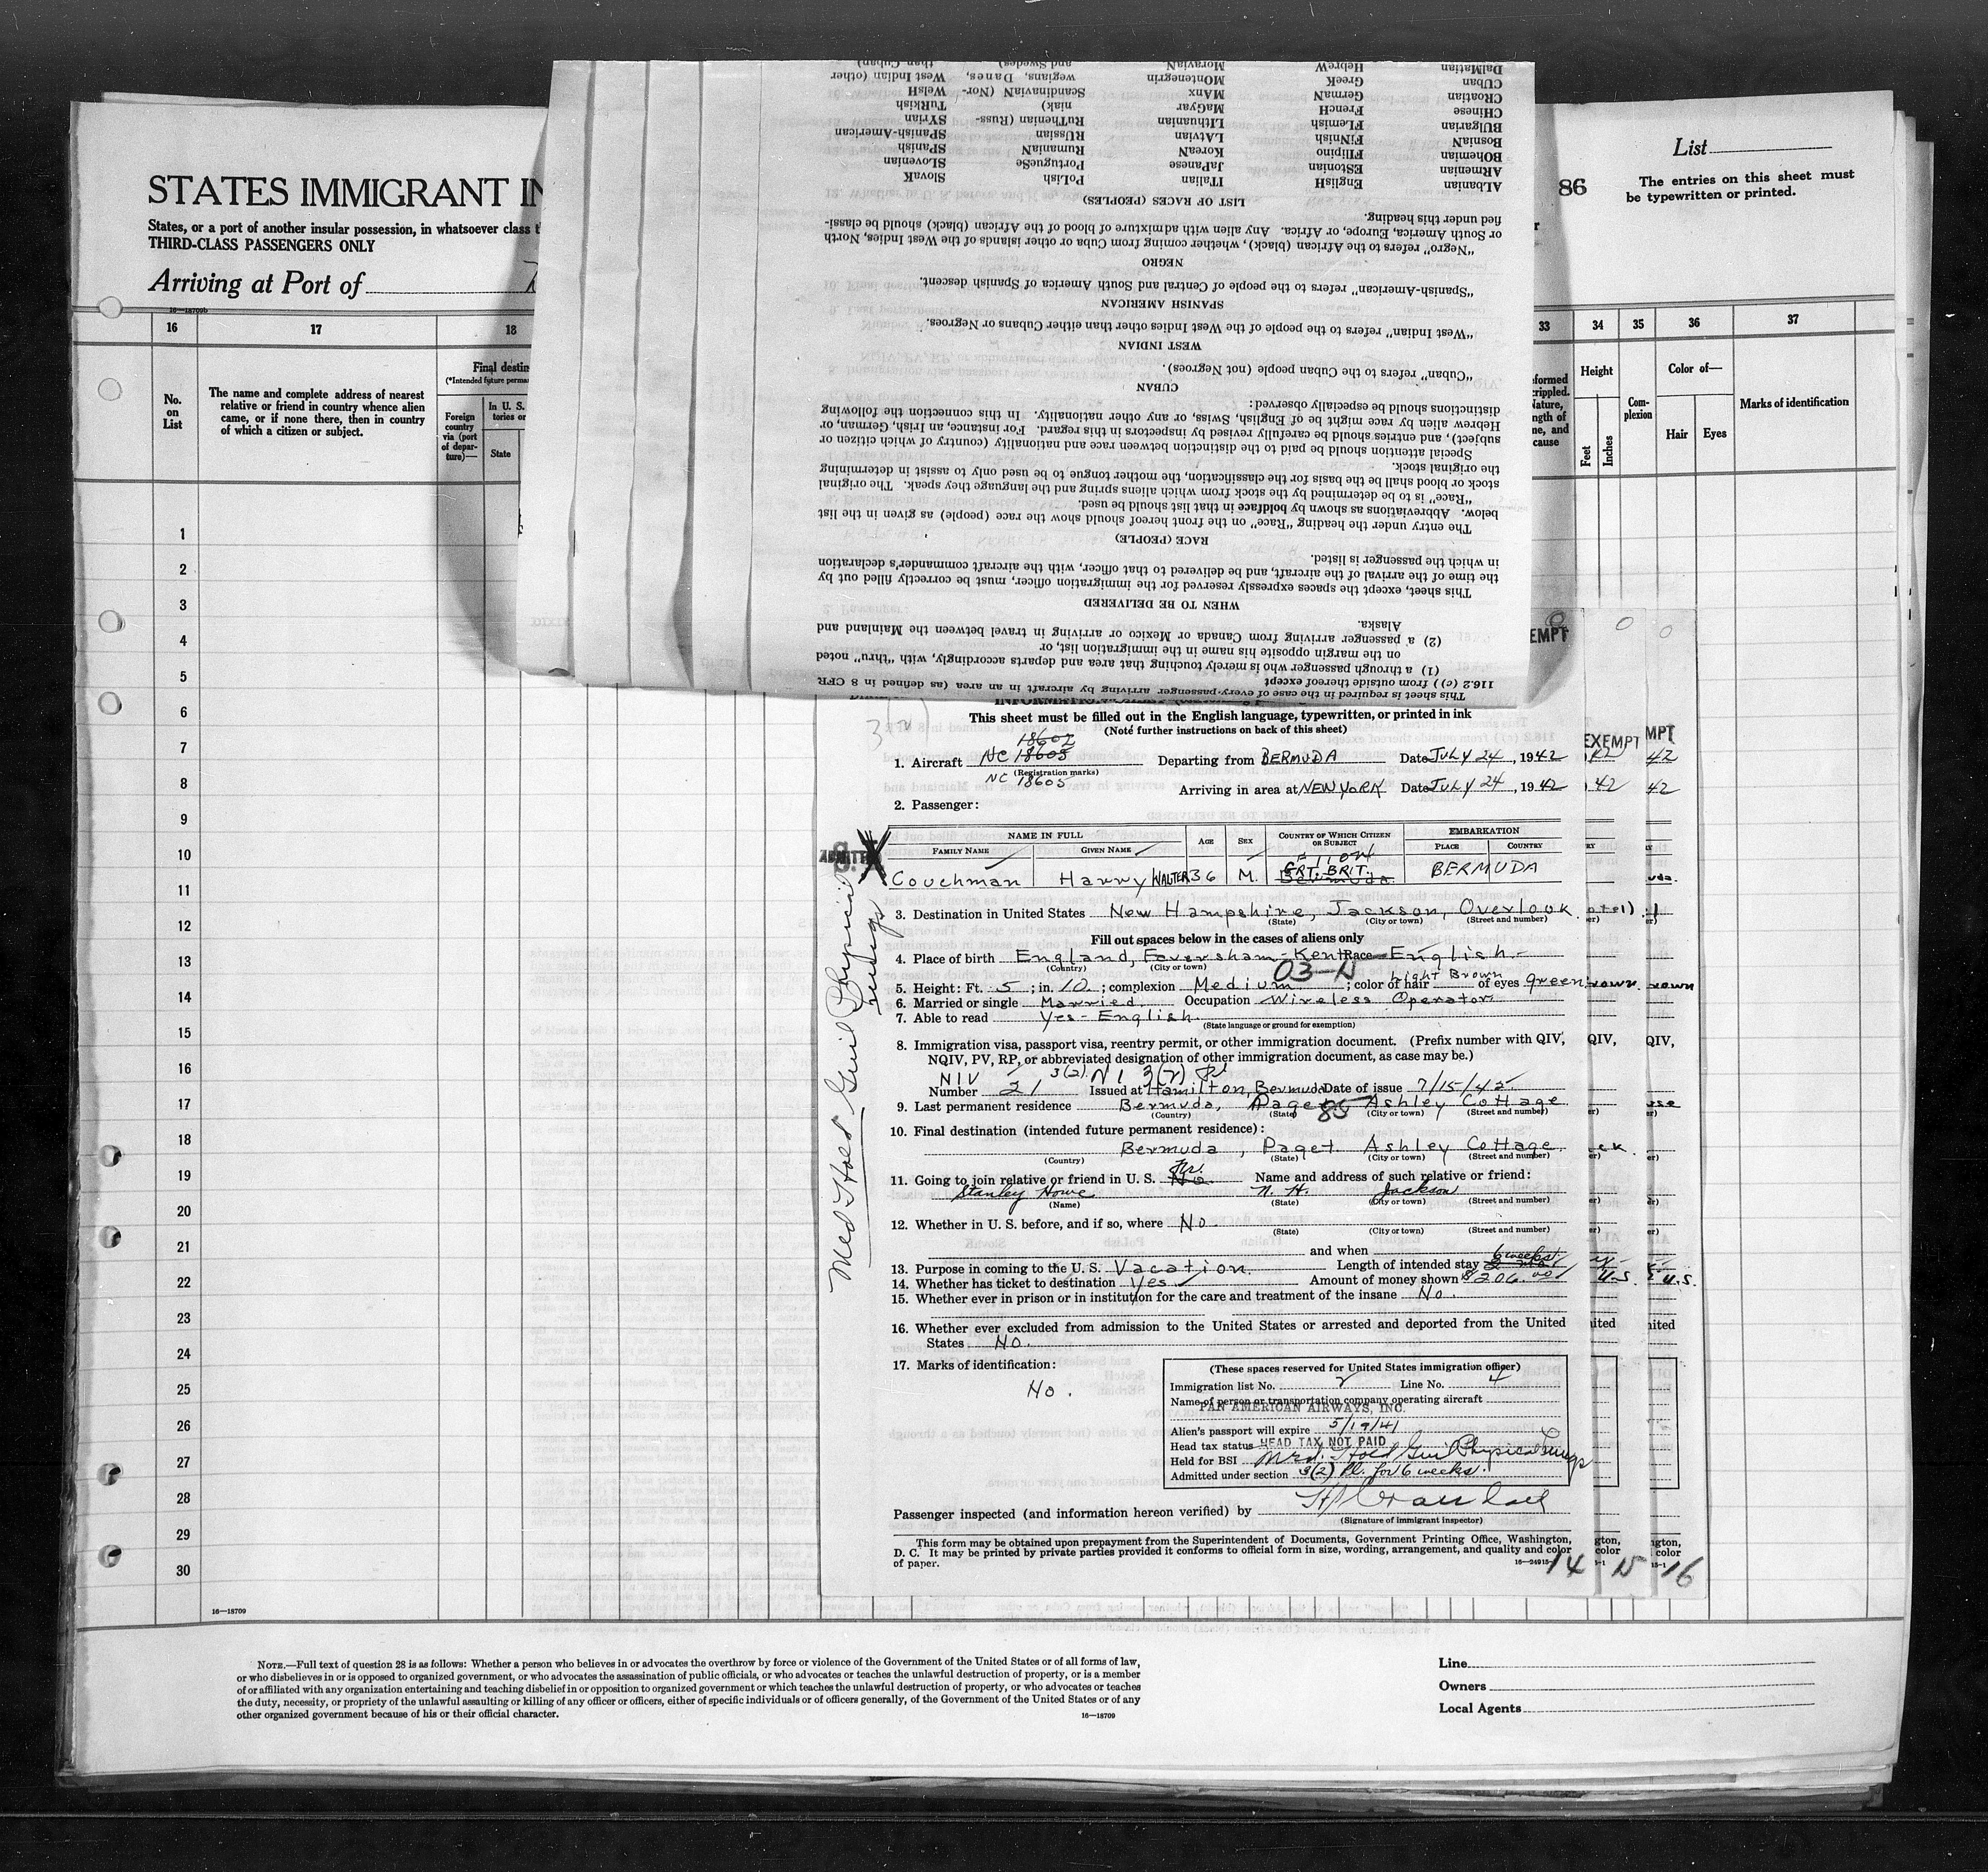 STATES IMMIGRANT IN
States, or a port of another insular possession, in whatsoever class t
THIRD-CLASS PASSENGERS ONLY
Arriving at Port of
16—18709b
16 17 18
No. on List
The name and complete address of nearest
relative or friend in country whence alien
came, or if none there, then in country
of which a citizen or subject.
Final destin
(*Intended future perma
Foreign country via (port of departure)—
In U. S.
tories or
State
1
2
3
4
5
6
7
8
9
10
11
12
13
14
15
16
17
18
19
20
21
22
23
24
25
26
27
28
29
30
16—18709
86
List
The entries on this sheet must
be typewritten or printed.
33 34 35 36 37
Height
Feet
Inches
Com-
plexion
Color of—
Hair Eyes
Marks of identification
This sheet is required in the case of every passenger arriving by aircraft in an area (as defined in 8 CFR
116.2 (c)) from outside thereof except
(1) a through passenger who is merely touching that area and departs accordingly, with "thru" noted
on the margin opposite his name in the immigration list, or
(2) a passenger arriving from Canada or Mexico or arriving in travel between the Mainland and
Alaska.
WHEN TO BE DELIVERED
This sheet, except the spaces expressly reserved for the immigration officer, must be correctly filled out by
the time of the arrival of the aircraft, and be delivered to that officer, with the aircraft commander's declaration
in which the passenger is listed.
RACE (PEOPLE)
The entry under the heading "Race" on the front hereof should show the race (people) as given in the list
below. Abbreviations as shown by boldface in that list should be used.
"Race" is to be determined by the stock from which aliens spring and the language they speak. The original
stock or blood shall be the basis for the classification, the mother tongue to be used only to assist in determining
the original stock.
Special attention should be paid to the distinction between race and nationality (country of which citizen or
subject), and entries should be carefully revised by inspectors in this regard. For instance, an Irish, German, or
Hebrew alien by race might be of English, Swiss, or any other nationality. In this connection the following
distinctions should be especially observed:
CUBAN
"Cuban" refers to the Cuban people (not Negroes).
WEST INDIAN
"West Indian" refers to the people of the West Indies other than either Cubans or Negroes.
SPANISH AMERICAN
"Spanish-American" refers to the people of Central and South America of Spanish descent.
NEGRO
"Negro" refers to the African (black), whether coming from Cuba or other islands of the West Indies, North
or South America, Europe, or Africa. Any alien with admixture of blood of the African (black) should be classi-
fied under this heading.
LIST OF RACES (PEOPLES)
ALbanian EnglisH ITalian PoLish SlovaK
ARmenian EStonian JaPanese PortugueSe SLovenian
BOhemian FIlipino KoreaN RumaniaN SPanisH
BosniaN FiNnisH LAtvian RUssian SPanish-American
BUlgarian FLemish LIthuanian RuThenian (Russ- SYrian
CHinese FrencH MaGyar niak) TuRkish
CRoatian GermaN MAnx ScandinaviaN (Nor- WelsH
CUban GreeK MOntenegrin wegians, Danes, West Indian (other
DalMatian HebreW MoraviaN and Swedes) than Cuban)
This sheet must be filled out in the English language, typewritten, or printed in ink
(Note further instructions on back of this sheet)
18602
1. Aircraft NC 18603 Departing from BERMUDA Date JULY 24, 1942
(Registration marks)
NC 18605 Arriving in area at NEW YORK Date JULY 24, 1942
2. Passenger:
NAME IN FULL AGE SEX COUNTRY OF WHICH CITIZEN OR SUBJECT EMBARKATION
FAMILY NAME GIVEN NAME PLACE COUNTRY
Couchman Harry WALTER 36 M. GRT. BRIT. Bermuda BERMUDA
3. Destination in United States New Hampshire, Jackson, Overlook
(State) (City or town) (Street and number)
Fill out spaces below in the cases of aliens only
4. Place of birth England, Faversham-Kent Race English
(Country) (City or town)
03-N
5. Height: Ft. 5; in. 10; complexion Medium; color of hair Light Brown of eyes green
6. Married or single Married. Occupation Wireless Operator
7. Able to read Yes - English.
(State language or ground for exemption)
8. Immigration visa, passport visa, reentry permit, or other immigration document. (Prefix number with QIV,
NQIV, PV, RP, or abbreviated designation of other immigration document, as case may be.)
NIV 3(2) NI 3(2) Pl
Number 21 Issued at Hamilton, Bermuda Date of issue 7/15/42
9. Last permanent residence Bermuda, Paget, Ashley Cottage
(Country) (State) (City or town) (Street and number)
85
10. Final destination (intended future permanent residence):
Bermuda, Paget Ashley Cottage
(Country) (State) (City or town) (Street and number)
11. Going to join relative or friend in U. S. No. Fr. Name and address of such relative or friend:
Stanley Howe N. H. Jackson
(Name) (State) (City or town) (Street and number)
12. Whether in U. S. before, and if so, where No.
(State) (City or town) (Street and number)
and when
13. Purpose in coming to the U. S. Vacation. Length of intended stay 6 weeks
14. Whether has ticket to destination Yes Amount of money shown $206.00
15. Whether ever in prison or in institution for the care and treatment of the insane No.
16. Whether ever excluded from admission to the United States or arrested and deported from the United
States No.
17. Marks of identification:
No.
(These spaces reserved for United States immigration officer)
Immigration list No. 2 Line No. 4
Name of person or transportation company operating aircraft
PAN AMERICAN AIRWAYS, INC.
Alien's passport will expire 5/19/41
Head tax status HEAD TAX NOT PAID
Held for BSI Med. Hold Guil Physical Lungs
Admitted under section 3(2) Pl. for 6 weeks.
Passenger inspected (and information hereon verified) by
(Signature of immigrant inspector)
This form may be obtained upon prepayment from the Superintendent of Documents, Government Printing Office, Washington,
D. C. It may be printed by private parties provided it conforms to official form in size, wording, arrangement, and quality and color
of paper.
14 15 16
Med Hold Guil Physical
Lungs
EXEMPT
NOTE.—Full text of question 28 is as follows: Whether a person who believes in or advocates the overthrow by force or violence of the Government of the United States or of all forms of law,
or who disbelieves in or is opposed to organized government, or who advocates the assassination of public officials, or who advocates or teaches the unlawful destruction of property, or is a member
of or affiliated with any organization entertaining and teaching disbelief in or opposition to organized government or which teaches the unlawful destruction of property, or who advocates or teaches
the duty, necessity, or propriety of the unlawful assaulting or killing of any officer or officers, either of specific individuals or of officers generally, of the Government of the United States or of any
other organized government because of his or their official character.
16—18709
Line
Owners
Local Agents